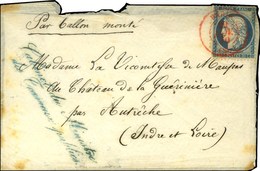 Par Ballon monté
Madame La Vicomtesse de Maupas
Au Château de la Guérinière
par Autrèche
(Indre et Loire)